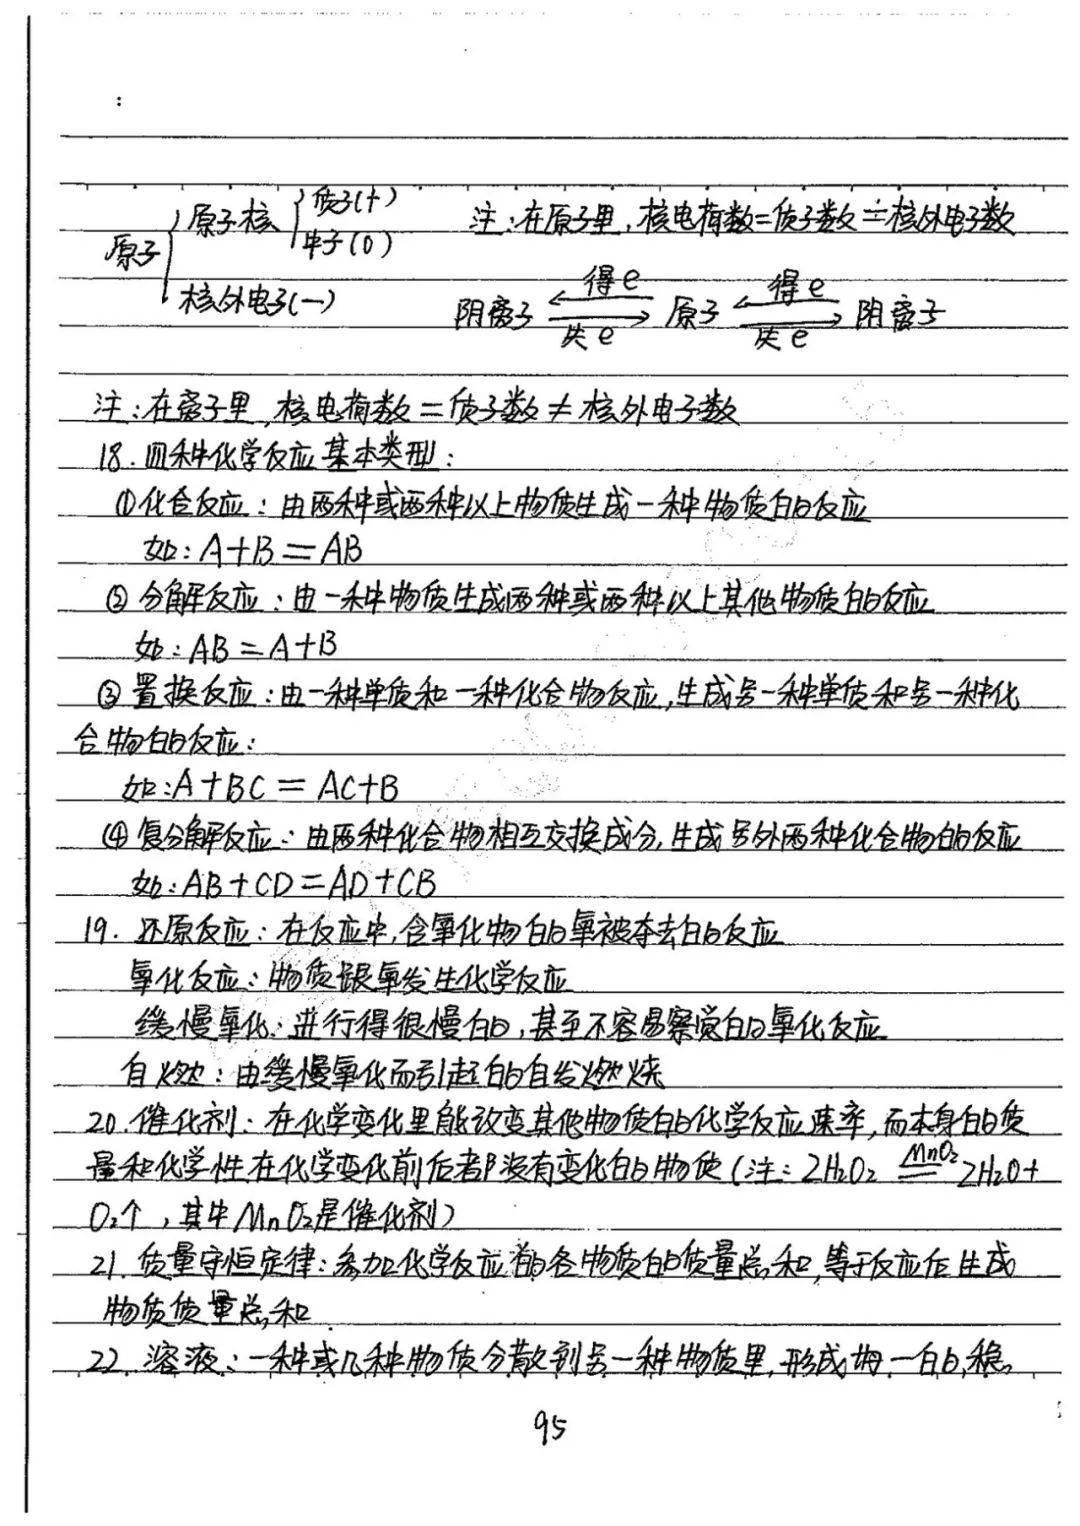 :
原子 { 原子核 { 质子(+) 中子(0)
核外电子(一)
注:在原子里,核电荷数=质子数=核外电子数
阴离子 ⇌ 原子 ⇌ 阴离子
得e 得e
失e 失e
注:在离子里,核电荷数=质子数≠核外电子数
18.四种化学反应基本类型:
①化合反应:由两种或两种以上物质生成一种物质的反应
如:A+B=AB
②分解反应:由一种物质生成两种或两种以上其他物质的反应
如:AB=A+B
③置换反应:由一种单质和一种化合物反应,生成另一种单质和另一种化
合物的反应:
如:A+BC=AC+B
④复分解反应:由两种化合物相互交换成分,生成另外两种化合物的反应
如:AB+CD=AD+CB
19.还原反应:在反应中,含氧化物的氧被夺去的反应
氧化反应:物质跟氧发生化学反应
缓慢氧化:进行得很慢的,甚至不容易察觉的氧化反应
自燃:由缓慢氧化而引起的自发燃烧
20.催化剂:在化学变化里能改变其他物质的化学反应速率,而本身的质
量和化学性在化学变化前后都没有变化的物质(注:2H₂O₂ =MnO₂= 2H₂O+
O₂↑,其中MnO₂是催化剂)
21.质量守恒定律:参加化学反应的各物质的质量总和,等于反应后生成
物质质量总和.
22.溶液:一种或几种物质分散到另一种物质里,形成均一的,稳
95